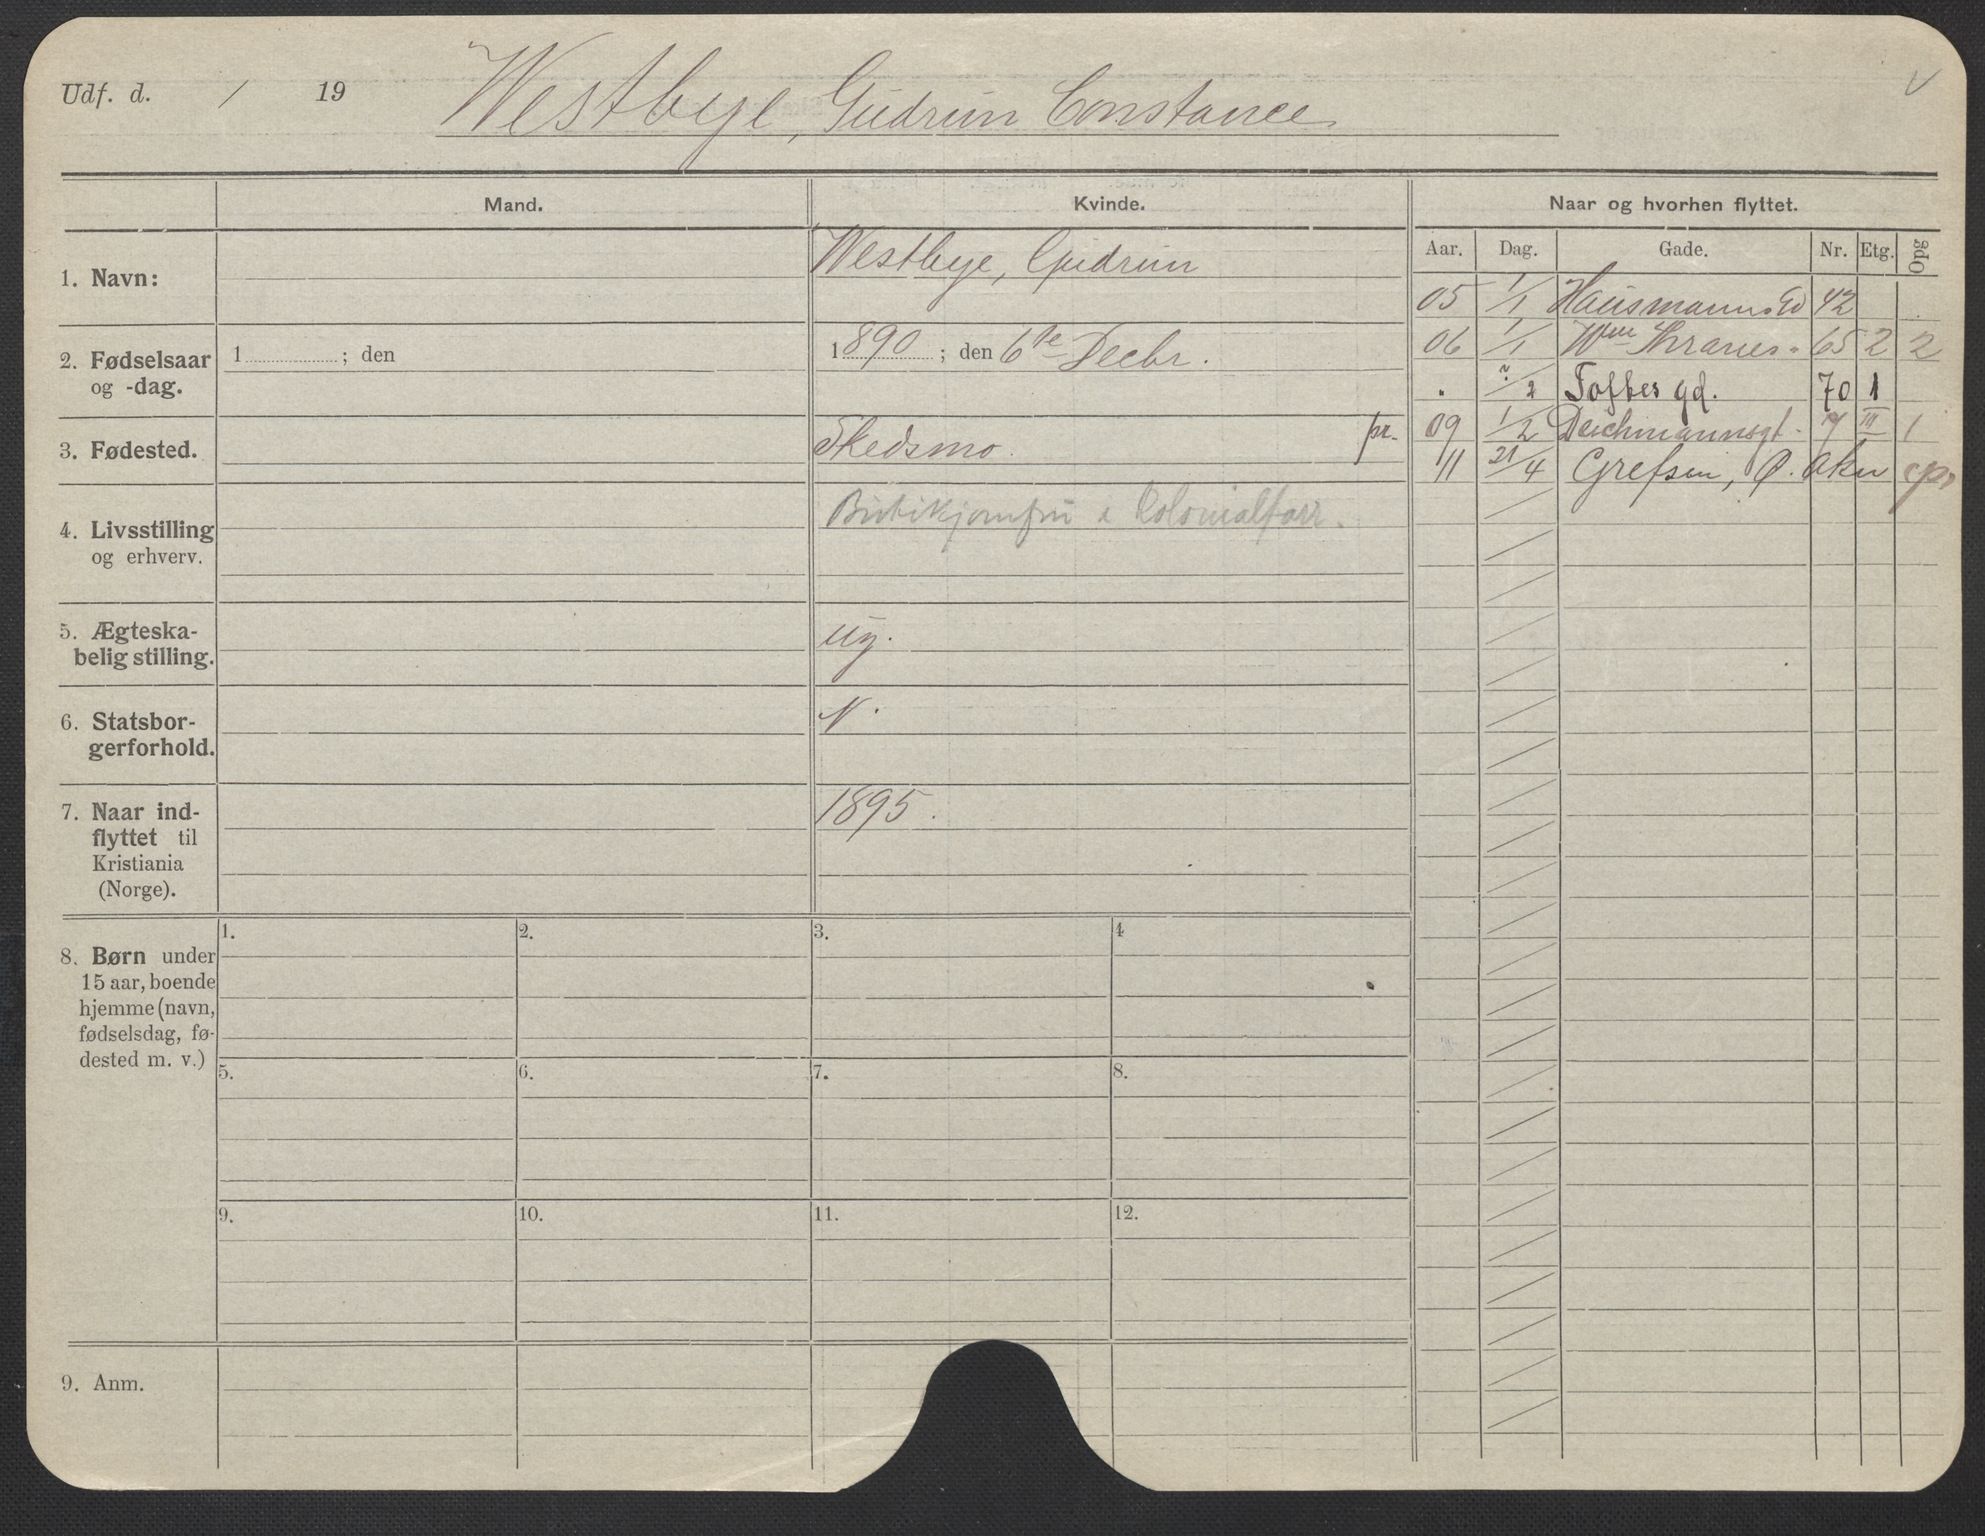 Udf. d. / 19
Westbye, Gudrun Constance
Mand. Kvinde. Naar og hvorhen flyttet.
Aar. Dag. Gade. Nr. Etg. Opg
1. Navn: Westbye, Gudrun
2. Fødselsaar og -dag. 1 ; den 1890 ; den 6te Decbr.
3. Fødested. Skedsmo. pr.
4. Livsstilling og erhverv. Butikjomfru i Colonialforr.
5. Ægteska-
belig stilling. ug.
6. Statsbor-
gerforhold. N.
7. Naar ind-
flyttet til
Kristiania
(Norge). 1895.
05 1/1 Hausmanns Gd 42
06 1/1 Wm Thranes " 65 2 2
" ?/2 Toftes gd. 70 1
09 1/2 Deichmannsgt. 7 III 1
11 21/4 Grefsen, Ø. Aker
8. Børn under
15 aar, boende
hjemme (navn,
fødselsdag, fø-
dested m. v.)
1. 2. 3. 4
5. 6. 7. 8.
9. 10. 11. 12.
9. Anm.